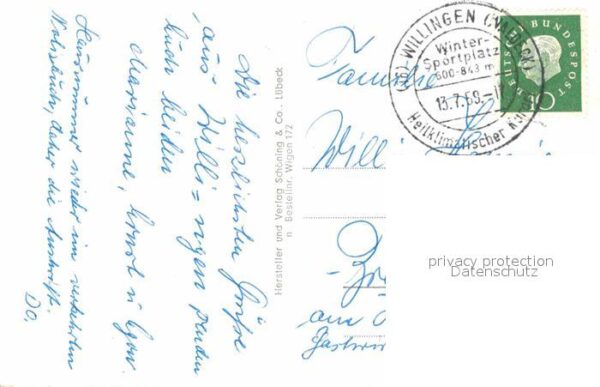 Die herzlichsten Grüße
aus Willi=ngen senden
Euch beiden
Marianne, Horst u.
Hausnummer wieder im verkehrten
Notizbuch, daher die Anschrift.
Do.
Hersteller und Verlag Schöning & Co., Lübeck
n Bestellnr. Wigen 172
Familie
Willi
am
Gastwir
WILLINGEN (WALDECK)
Winter-
Sportplatz
600-843 m
13.7.69.-1
Heilklimatischer Kur
DEUTSCHE BUNDESPOST
privacy protection
Datenschutz